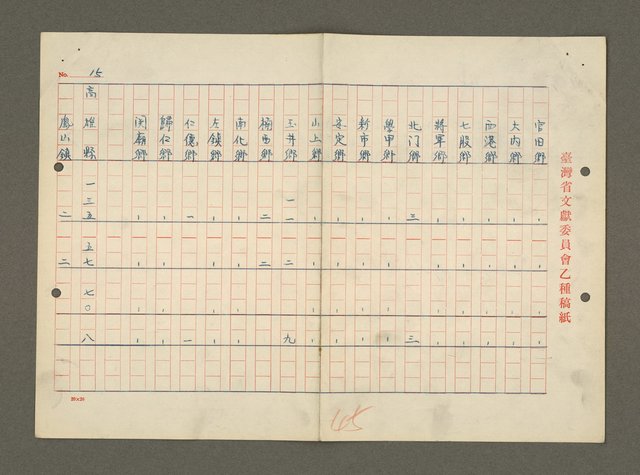 臺灣省文獻委員會乙種稿紙
No. 15
官田鄉 , , , ,
大內鄉 , , , ,
西港鄉 , , , ,
七股鄉 , , , ,
將軍鄉 , , , ,
北门鄉 三 , , 三
學甲鄉 , , , ,
新市鄉 , , , ,
安定鄉 , , , ,
山上鄉 , , , ,
玉井鄉 一一 二 , 九
楠西鄉 二 二 , ,
南化鄉 , , , ,
左鎮鄉 , , , ,
仁德鄉 一 , , 一
歸仁鄉 , , , ,
関廟鄉 , , , ,
高雄縣 一三五 五七 七〇 八
鳳山鎮 二 二
20×20
45